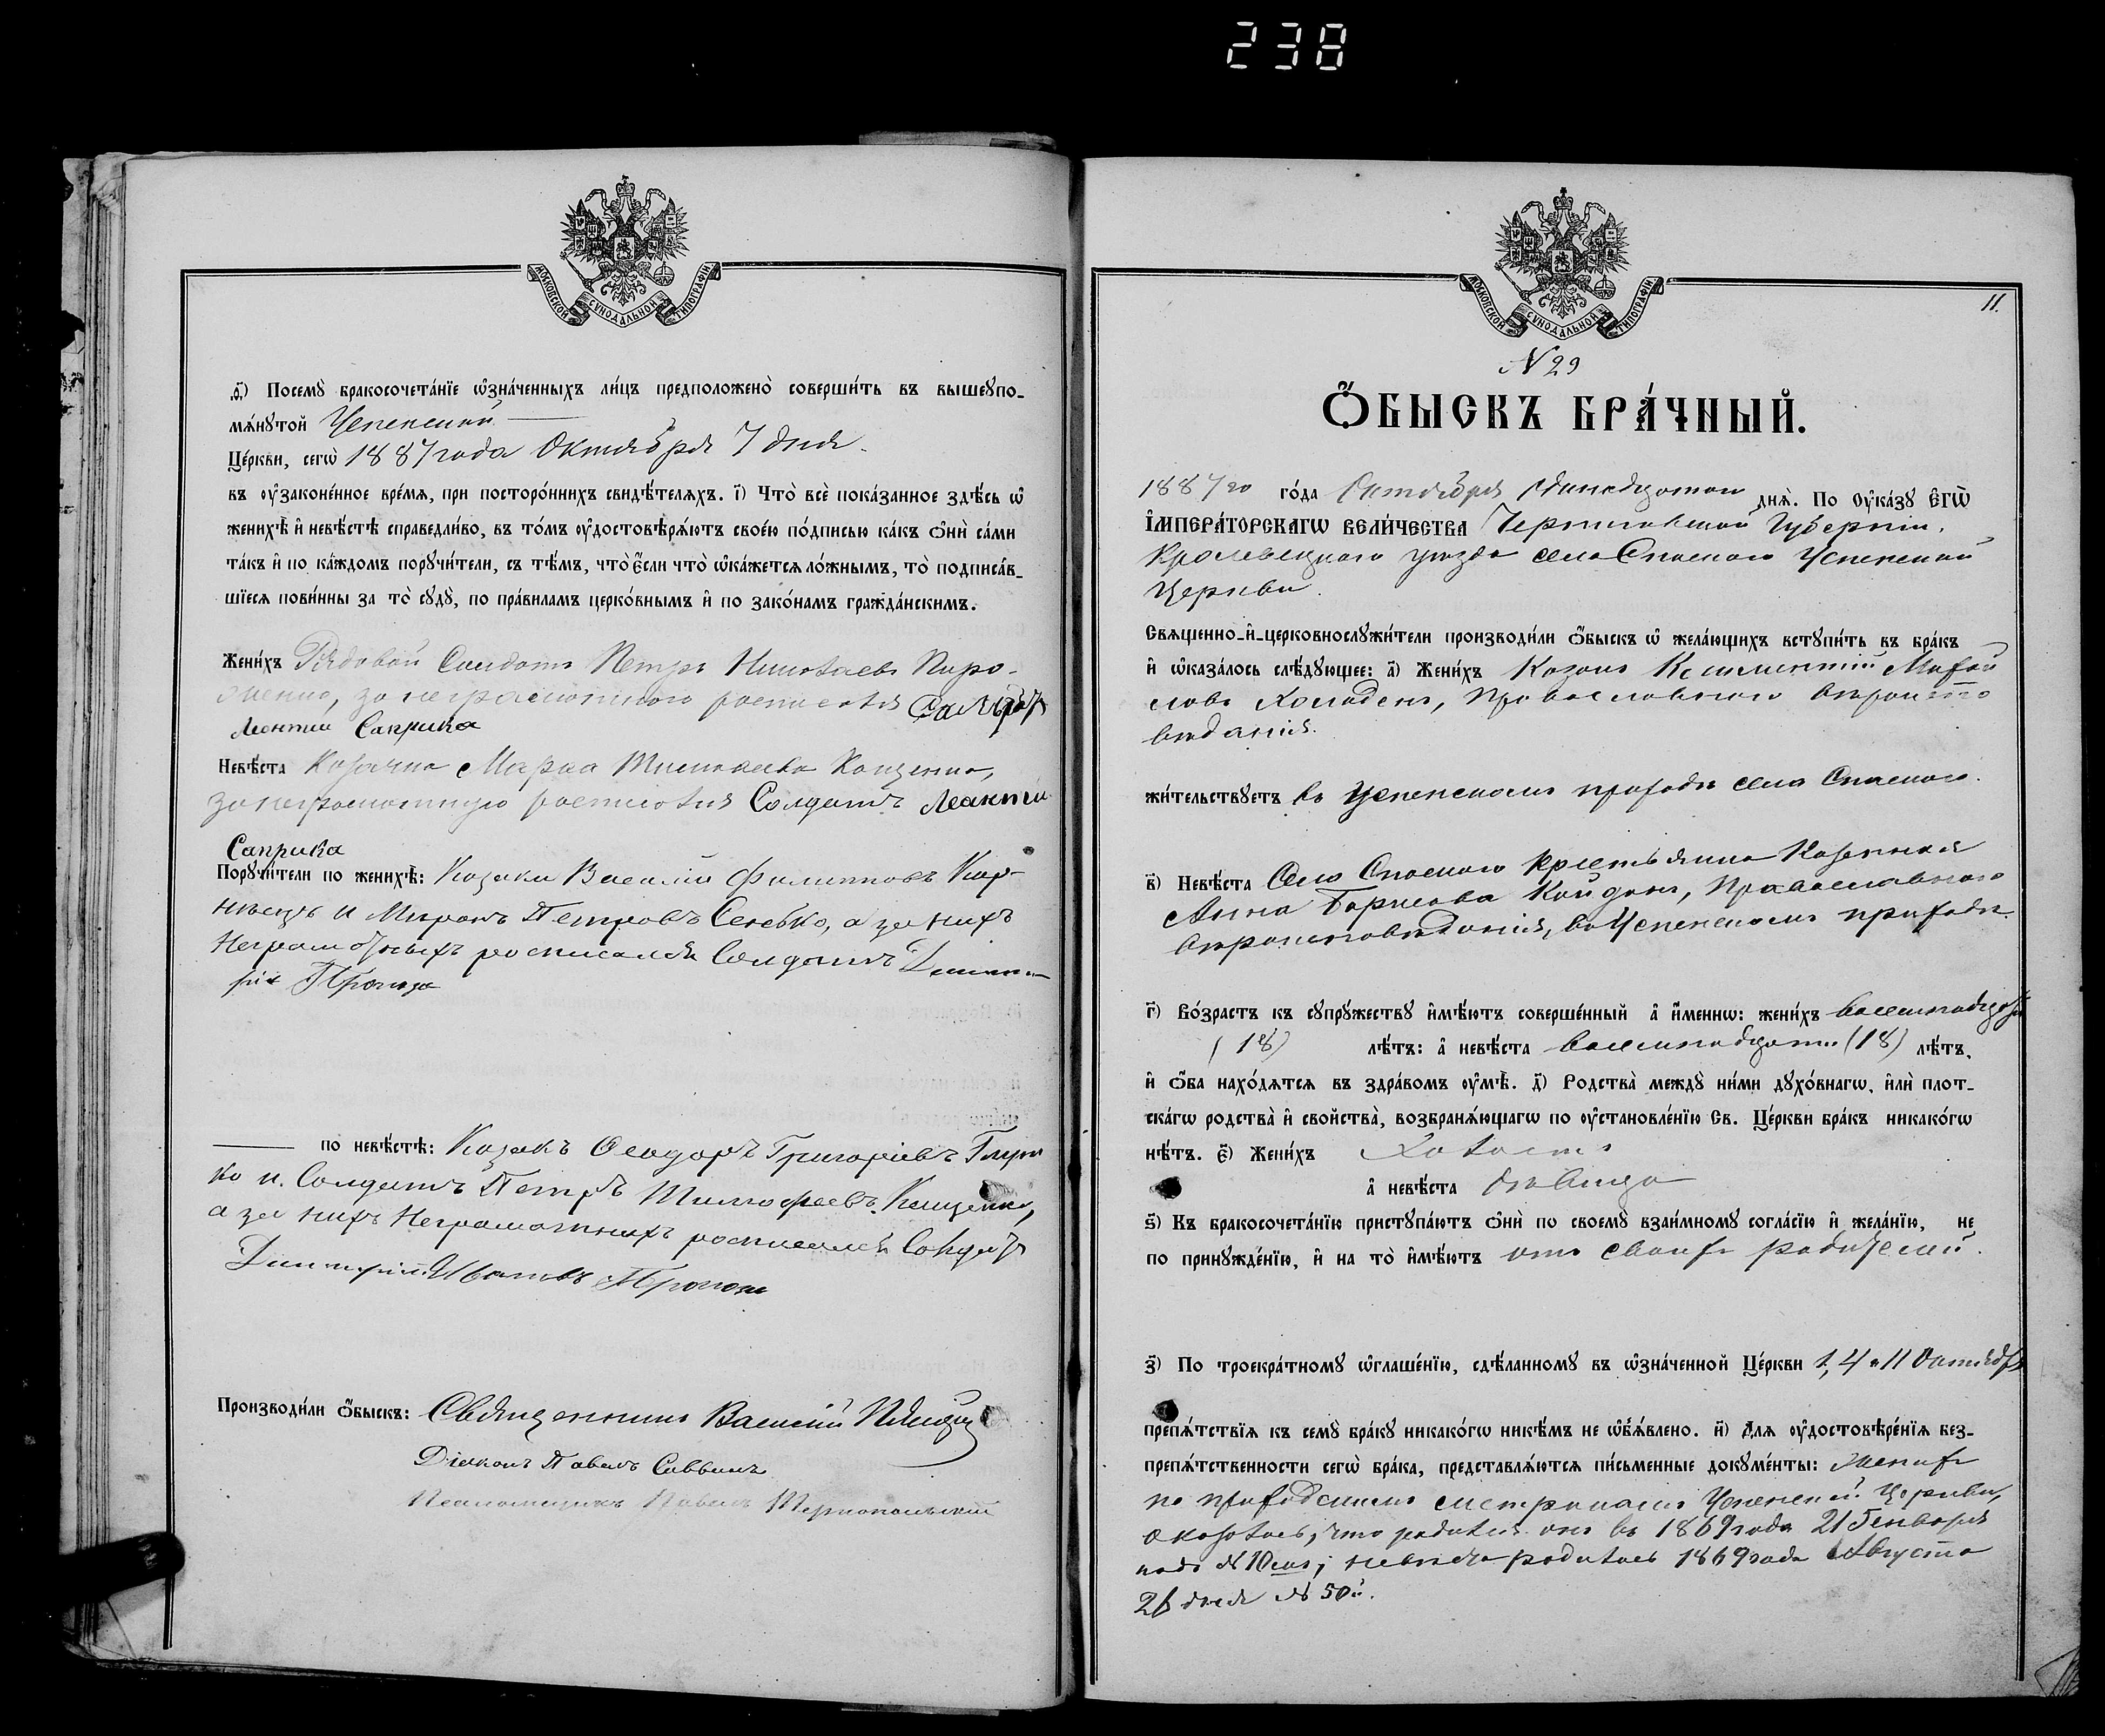 238
МОСКОВСКОЙ СѴНОДАЛЬНОЙ ТИПОГРАФІИ.
ѳ҃) Посемꙋ̀ бракосочета́нїе ѡ҆зна́ченныхъ ли́цъ предположено̀ соверши́ть въ вышеꙋпо-
мѧ́нꙋтой Успенской
Це́ркви, сегѡ̀ 1887 года Октября 7 дня
въ ᲂу҆законе́нное вре́мѧ, при посторо́ннихъ свидѣ́телѧхъ. і҃) Что̀ всѐ пока́занное здѣ́сь ѡ҆
женихѣ̀ и҆ невѣ́стѣ справедли́во, въ то́мъ ᲂу҆достовѣрѧ́ютъ свое́ю по́дписью ка́къ ѻ҆нѝ са́ми
та́къ и҆ по ка́ждомъ порꙋчи́тели, съ тѣ́мъ, что̀ є҆́сли что̀ ѡ҆ка́жетсѧ ло́жнымъ, то̀ подписа́в-
шїесѧ пови́нны за то̀ сꙋдꙋ̀, по пра́виламъ церко́внымъ и҆ по зако́намъ гражда́нскимъ.
Жени́хъ Рядовой Солдатъ Петръ Николаевъ
за неграмотного росписался Солдат
Леонтий Саприка
Невѣ́ста Козачка Марѳа Кащенко,
за неграмотную росписался Солдатъ Леонти
Саприка
Порꙋчи́тели по женихѣ̀: Козаки Василій Филиповъ
и Миронъ Петровъ а за нихъ
Неграмотныхъ росписался Солдатъ Дмит-
рій
по невѣ́стѣ: Козакъ Ѳеодоръ Григоріевъ
ко и Солдатъ Петръ Тимофеевъ Кащенко,
а за нихъ Неграмотныхъ росписался Солдатъ
Дмитрій Ивановъ
Производи́ли ѻ҆́быскъ: Священникъ Василій
Діаконъ Павелъ Саввинъ
Псаломщикъ Павелъ Тернопольскій
МОСКОВСКОЙ СѴНОДАЛЬНОЙ ТИПОГРАФІИ.
11.
N 29
Ѻ҆́БЫСКЪ БРА́ЧНЫЙ.
1887го го́да Октября Одинадцатого днѧ̀. По Оу҆ка́зꙋ Є҆ГѠ̀
І҆МПЕРА́ТОРСКАГѠ ВЕЛИ́ЧЕСТВА Черниговской Губерніи,
Кролевецкого уезда села Спаского Успенской
Церкви.
Свѧщенно-и҆-церковнослꙋжи́тели производи́ли ѻ҆́быскъ ѡ҆ жела́ющихъ встꙋпи́ть въ бра́къ
и҆ ѡ҆каза́лось слѣ́дꙋющее: а҃) Жени́хъ Козакъ Климентій Михай
ловъ Холоденъ, Православного вѣроиспо
вѣданія.
жи́тельствꙋетъ въ Успенскомъ приходѣ села Спаского.
в҃) Невѣ́ста Села Спаского крестьянка Казенная
Анна Борисова Православного
вѣроисповѣданія, въ Успенскомъ приходѣ.
г҃) Во́зрастъ къ сꙋпрꙋ́жествꙋ и҆мѣ́ютъ соверше́нный а҆ и҆́меннѡ: жени́хъ восемнадцать
(18) лѣ́тъ: а҆ невѣ́ста восемнадцать (18) лѣ́тъ,
и҆ ѻ҆́ба нахо́дѧтсѧ въ здра́вомъ ᲂу҆мѣ̀. д҃) Родства̀ междꙋ̀ ни́ми дꙋхо́внагѡ, и҆лѝ плот-
ска́гѡ родства̀ и҆ свойства̀, возбранѧ́ющагѡ по ᲂу҆становле́нїю Св. Це́ркви бра́къ никако́гѡ
нѣ́тъ. є҃) Жени́хъ Холостъ
а҆ невѣ́ста дѣвица
ѕ҃) Къ бракосочета́нїю пристꙋпа́ютъ ѻ҆нѝ по своемꙋ̀ взаи́мномꙋ согла́сїю и҆ жела́нїю, не
по принꙋжде́нїю, и҆ на то̀ и҆мѣ́ютъ отъ своихъ родителей.
з҃) По троекра́тномꙋ ѡ҆глаше́нїю, сдѣ́ланномꙋ въ ѡ҆зна́ченной Це́ркви 1, 4 и 11 Октября
препѧ́тствїѧ къ семꙋ̀ бра́кꙋ никако́гѡ никѣ́мъ не ѡ҆б̾ѧ́влено. и҃) Длѧ ᲂу҆достовѣре́нїѧ без-
препѧ́тственности сегѡ̀ бра́ка, представлѧ́ютсѧ пи́сьменные докꙋме́нты: Женихъ
по приходскимъ метрикамъ Успенской Церкви,
оказалось, что родился онъ въ 1869 года 21 Генваря
подъ N 10 невѣста родилась 1869 года Августа
26 дня N 50й.